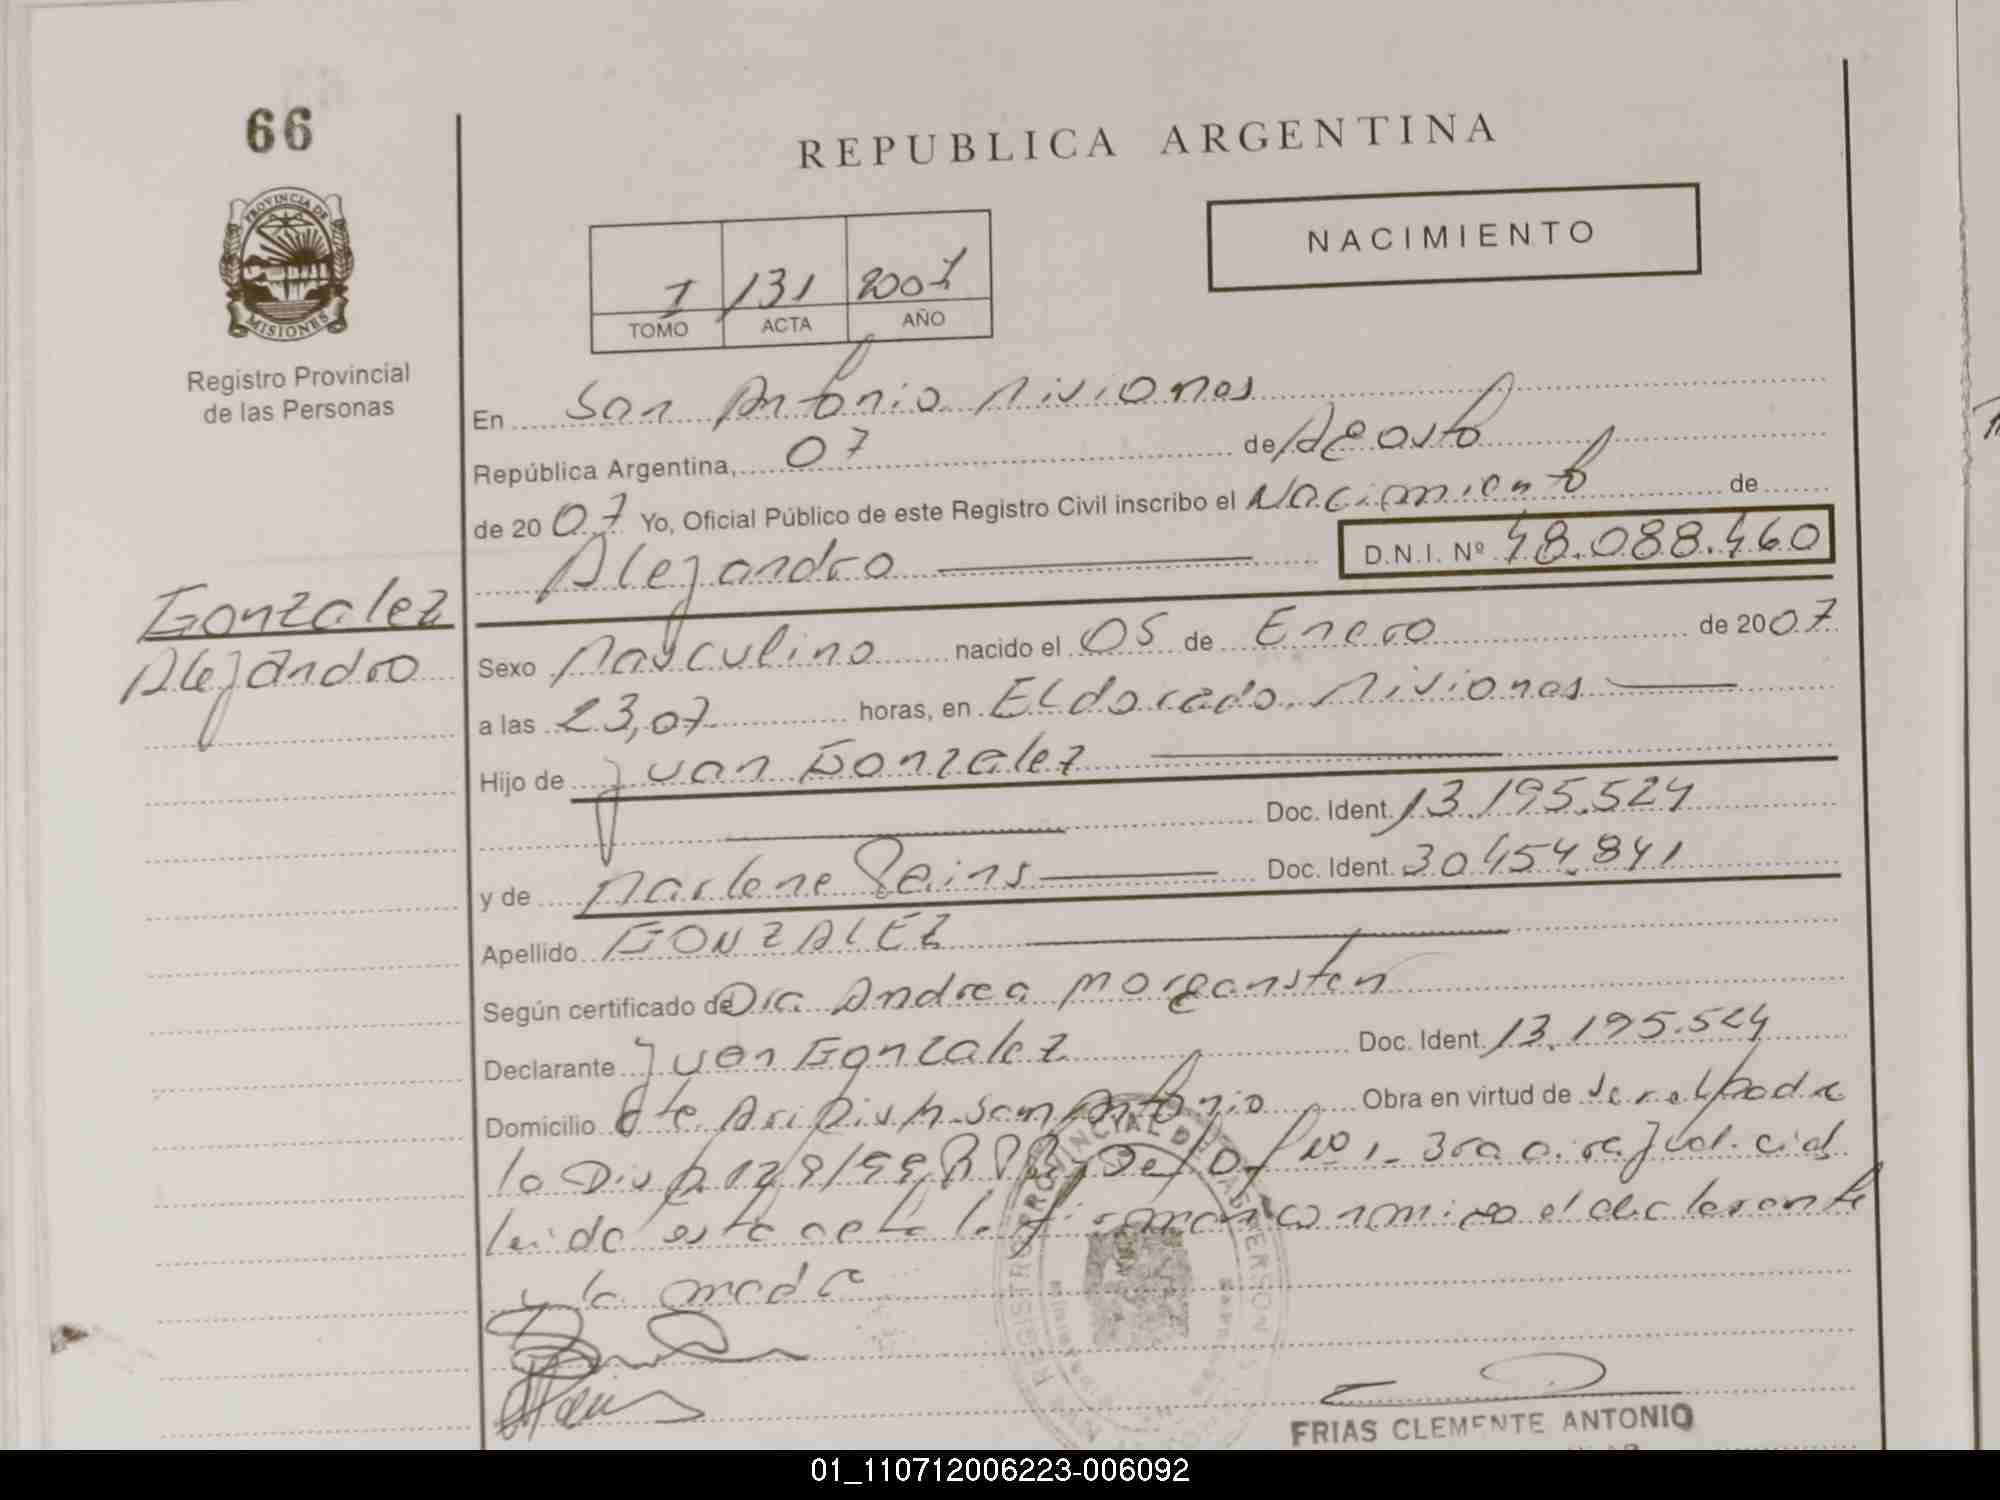 66
REPUBLICA ARGENTINA
PROVINCIA DE
MISIONES
NACIMIENTO
I 131 2007
TOMO ACTA AÑO
Registro Provincial
de las Personas
En San Antonio Misiones
República Argentina, 07 de Agosto
de 2007 Yo, Oficial Público de este Registro Civil inscribo el Nacimiento de
Alejandro D.N.I. Nº 48.088.460
Gonzalez
Alejandro
Sexo Masculino nacido el 05 de Enero de 2007
a las 23,07 horas, en Eldorado, Misiones
Hijo de Juan Gonzalez
Doc. Ident. 13.195.524
y de Marlene Reins Doc. Ident. 30454.841
Apellido GONZALEZ
Según certificado de Dra. Andrea Morgansten
Declarante Juan Gonzalez Doc. Ident. 13.195.524
Domicilio San Antonio Obra en virtud de ser el padre
la Disp. 129/99, Nº 1- 3ra
leida esta acta la firman conmigo el declarante
y la madre
FRIAS CLEMENTE ANTONIO
01_110712006223-006092